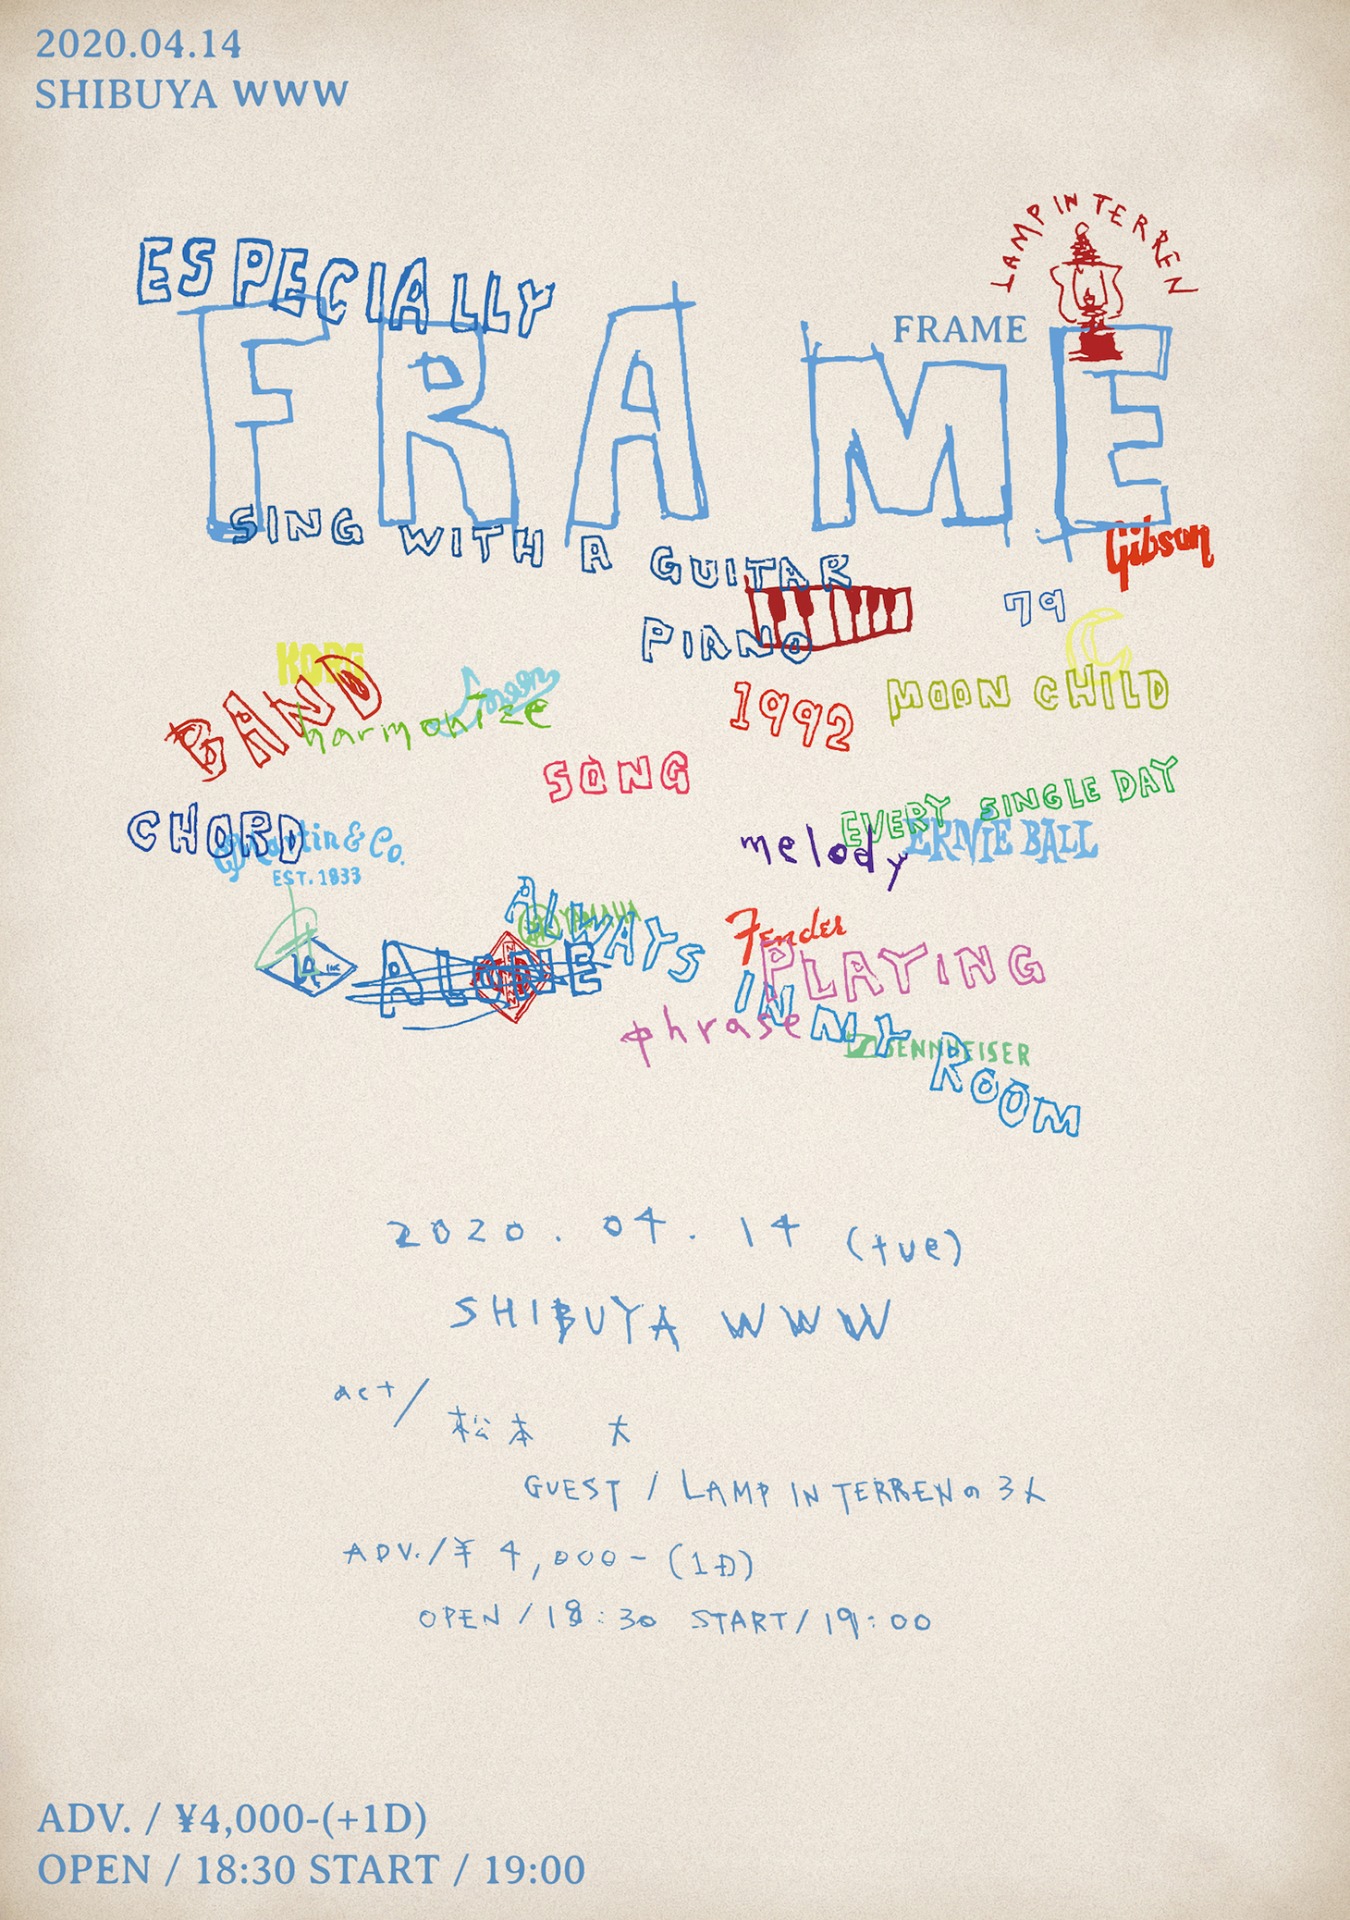 2020.04.14
SHIBUYA WWW
LAMP IN TERREN
ESPECIALLY
FRAME
FRAME
SING WITH A GUITAR
Gibson
79
PIANO
KORG
BAND
harmonize
moon
1992
MOON CHILD
SONG
EVERY SINGLE DAY
CHORD
Martin & Co.
EST. 1833
melody
ERNIE BALL
ALWAYS
YAMAHA
Fender
ALONE
PLAYING
IN MY ROOM
phrase
SENNHEISER
2020.04.14 (tue)
SHIBUYA WWW
act/
松本 大
GUEST / LAMP IN TERRENの3人
ADV./¥4,000-(1D)
OPEN/18:30 START/19:00
ADV. / ¥4,000-(+1D)
OPEN / 18:30 START / 19:00